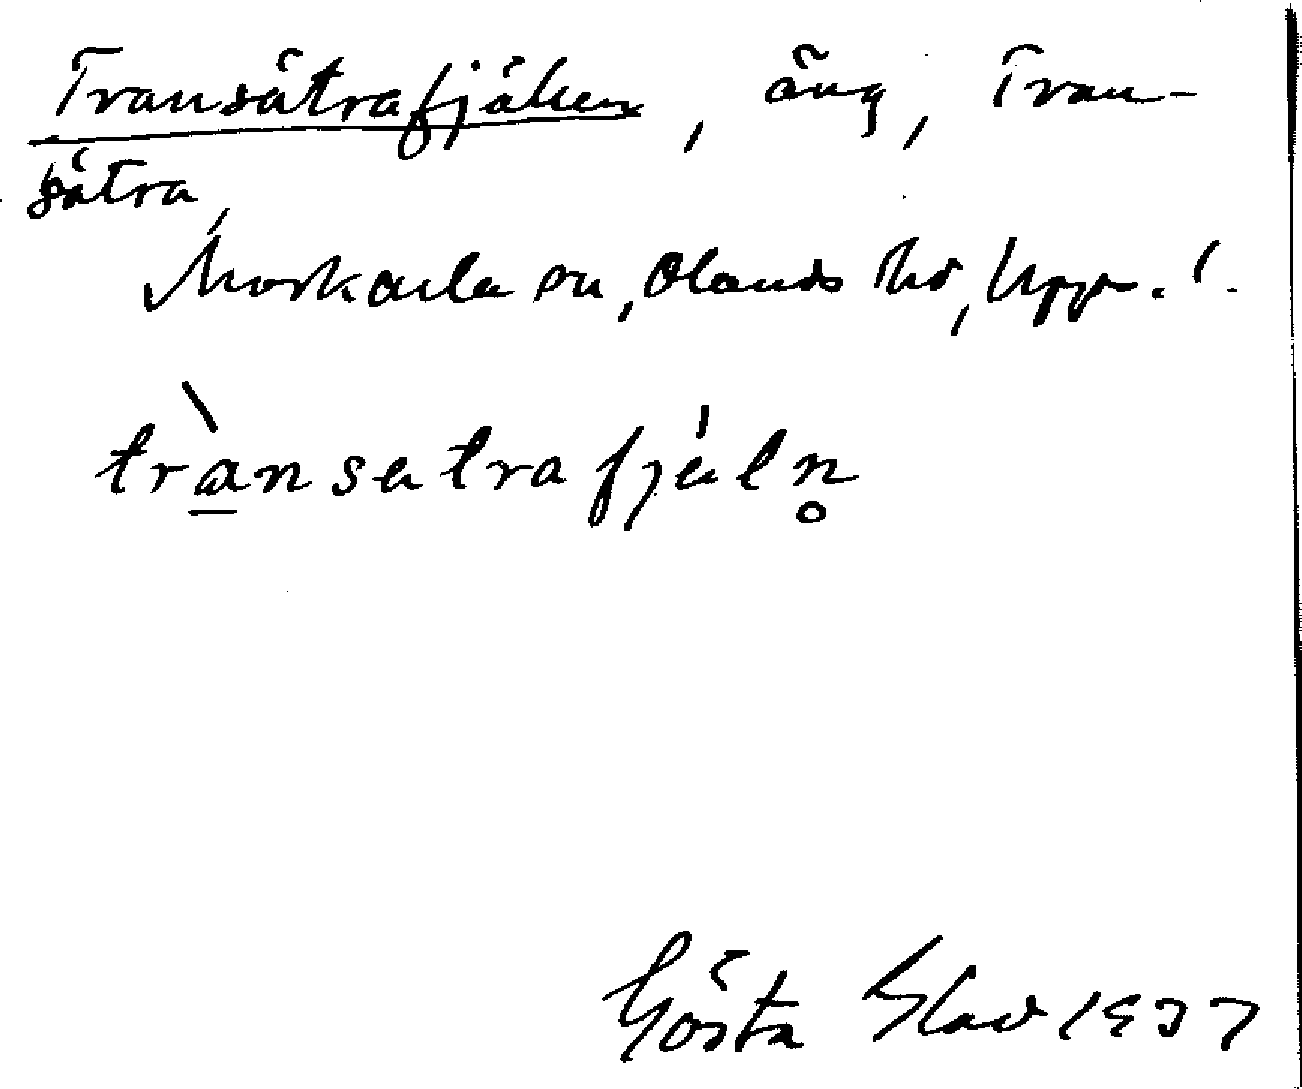 Transätrafjälen, äng, Tran-
sätra,
Morkarla sn, Olands hd, Uppl.
trànsatrafjäln̥
Gösta Blad 1937